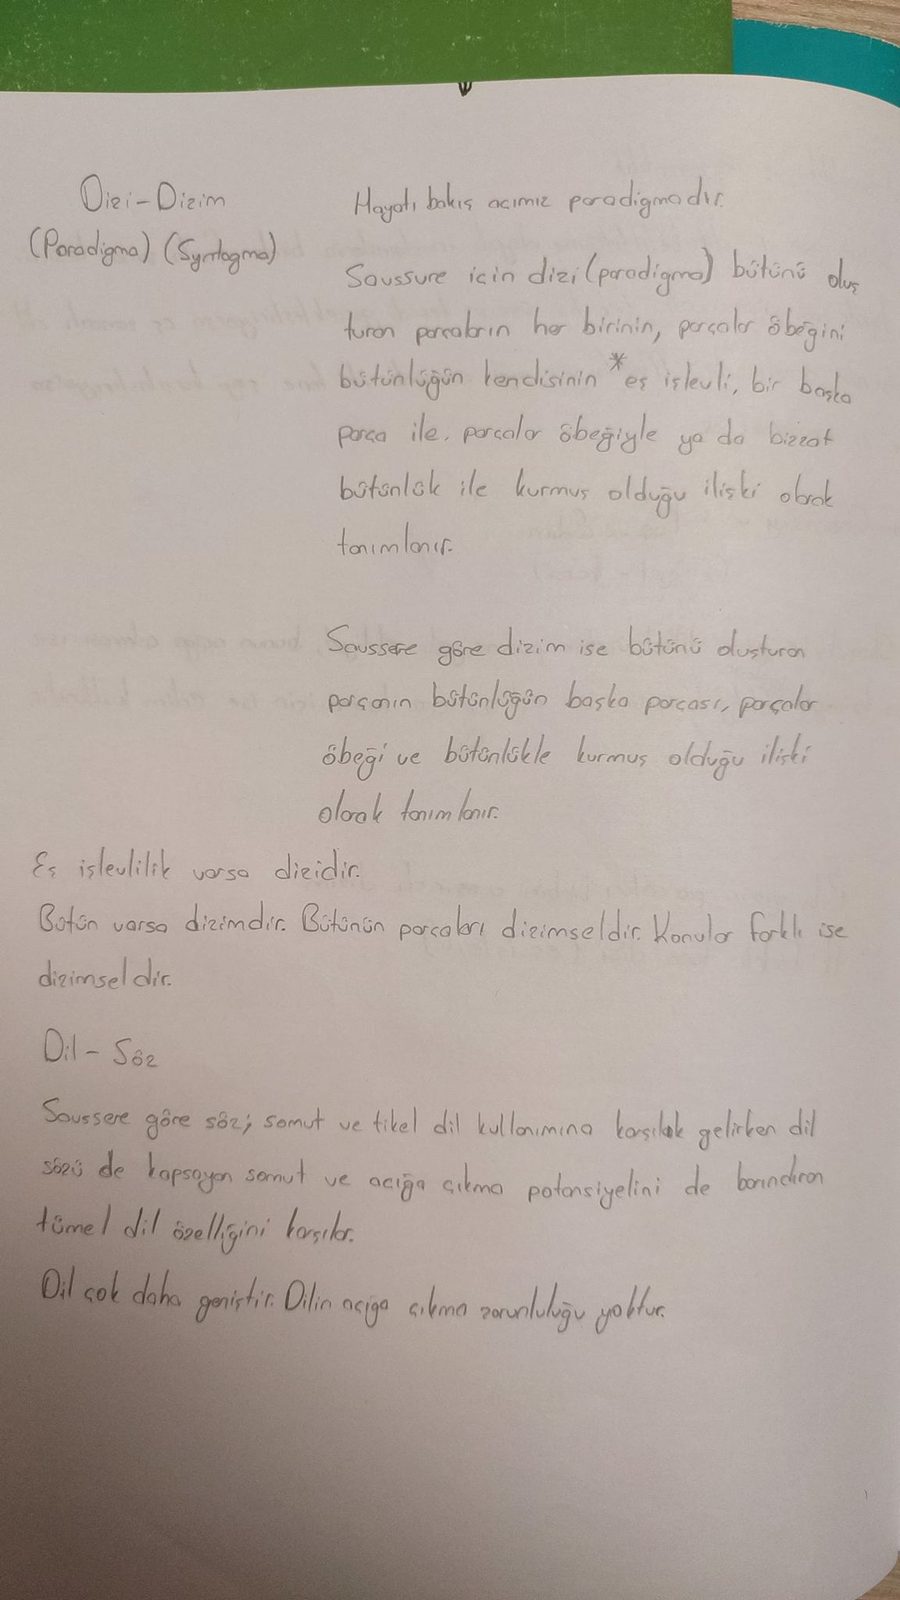 Dizi - Dizim
(Paradigma) (Syntagma)
Hayatı bakış açımız paradigmadır.
Saussure için dizi (paradigma) bütünü oluş
turan parçaların her birinin, parçalar öbeğini
bütünlüğün kendisinin *eş işlevli, bir başka
parça ile, parçalar öbeğiyle ya da bizzat
bütünlük ile kurmuş olduğu ilişki olarak
tanımlanır.
Saussere göre dizim ise bütünü oluşturan
parçanın bütünlüğün başka parçası, parçalar
öbeği ve bütünlükle kurmuş olduğu ilişki
olarak tanımlanır.
Eş işlevlilik varsa dizidir.
Bütün varsa dizimdir. Bütünün parçaları dizimseldir. Konular farklı ise
dizimseldir.
Dil - Söz
Saussere göre söz; somut ve tikel dil kullanımına karşılık gelirken dil
sözü de kapsayan somut ve açığa çıkma potansiyelini de barındıran
tümel dil özelliğini karşılar.
Dil çok daha geniştir. Dilin açığa çıkma zorunluluğu yoktur.